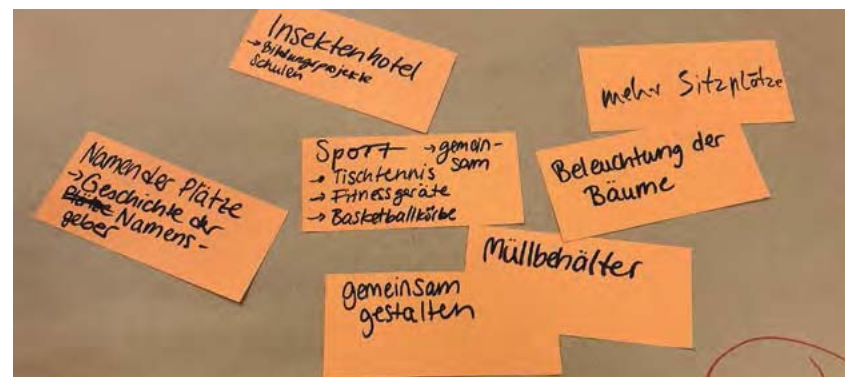 Insektenhotel
→ Bildungsprojekte
Schulen
mehr Sitzplätze
Namen der Plätze
→ Geschichte der
Plätze Namens-
geber
Sport → gemein-
sam
→ Tischtennis
→ Fitnessgeräte
→ Basketballkörbe
Beleuchtung der
Bäume
Müllbehälter
gemeinsam
gestalten